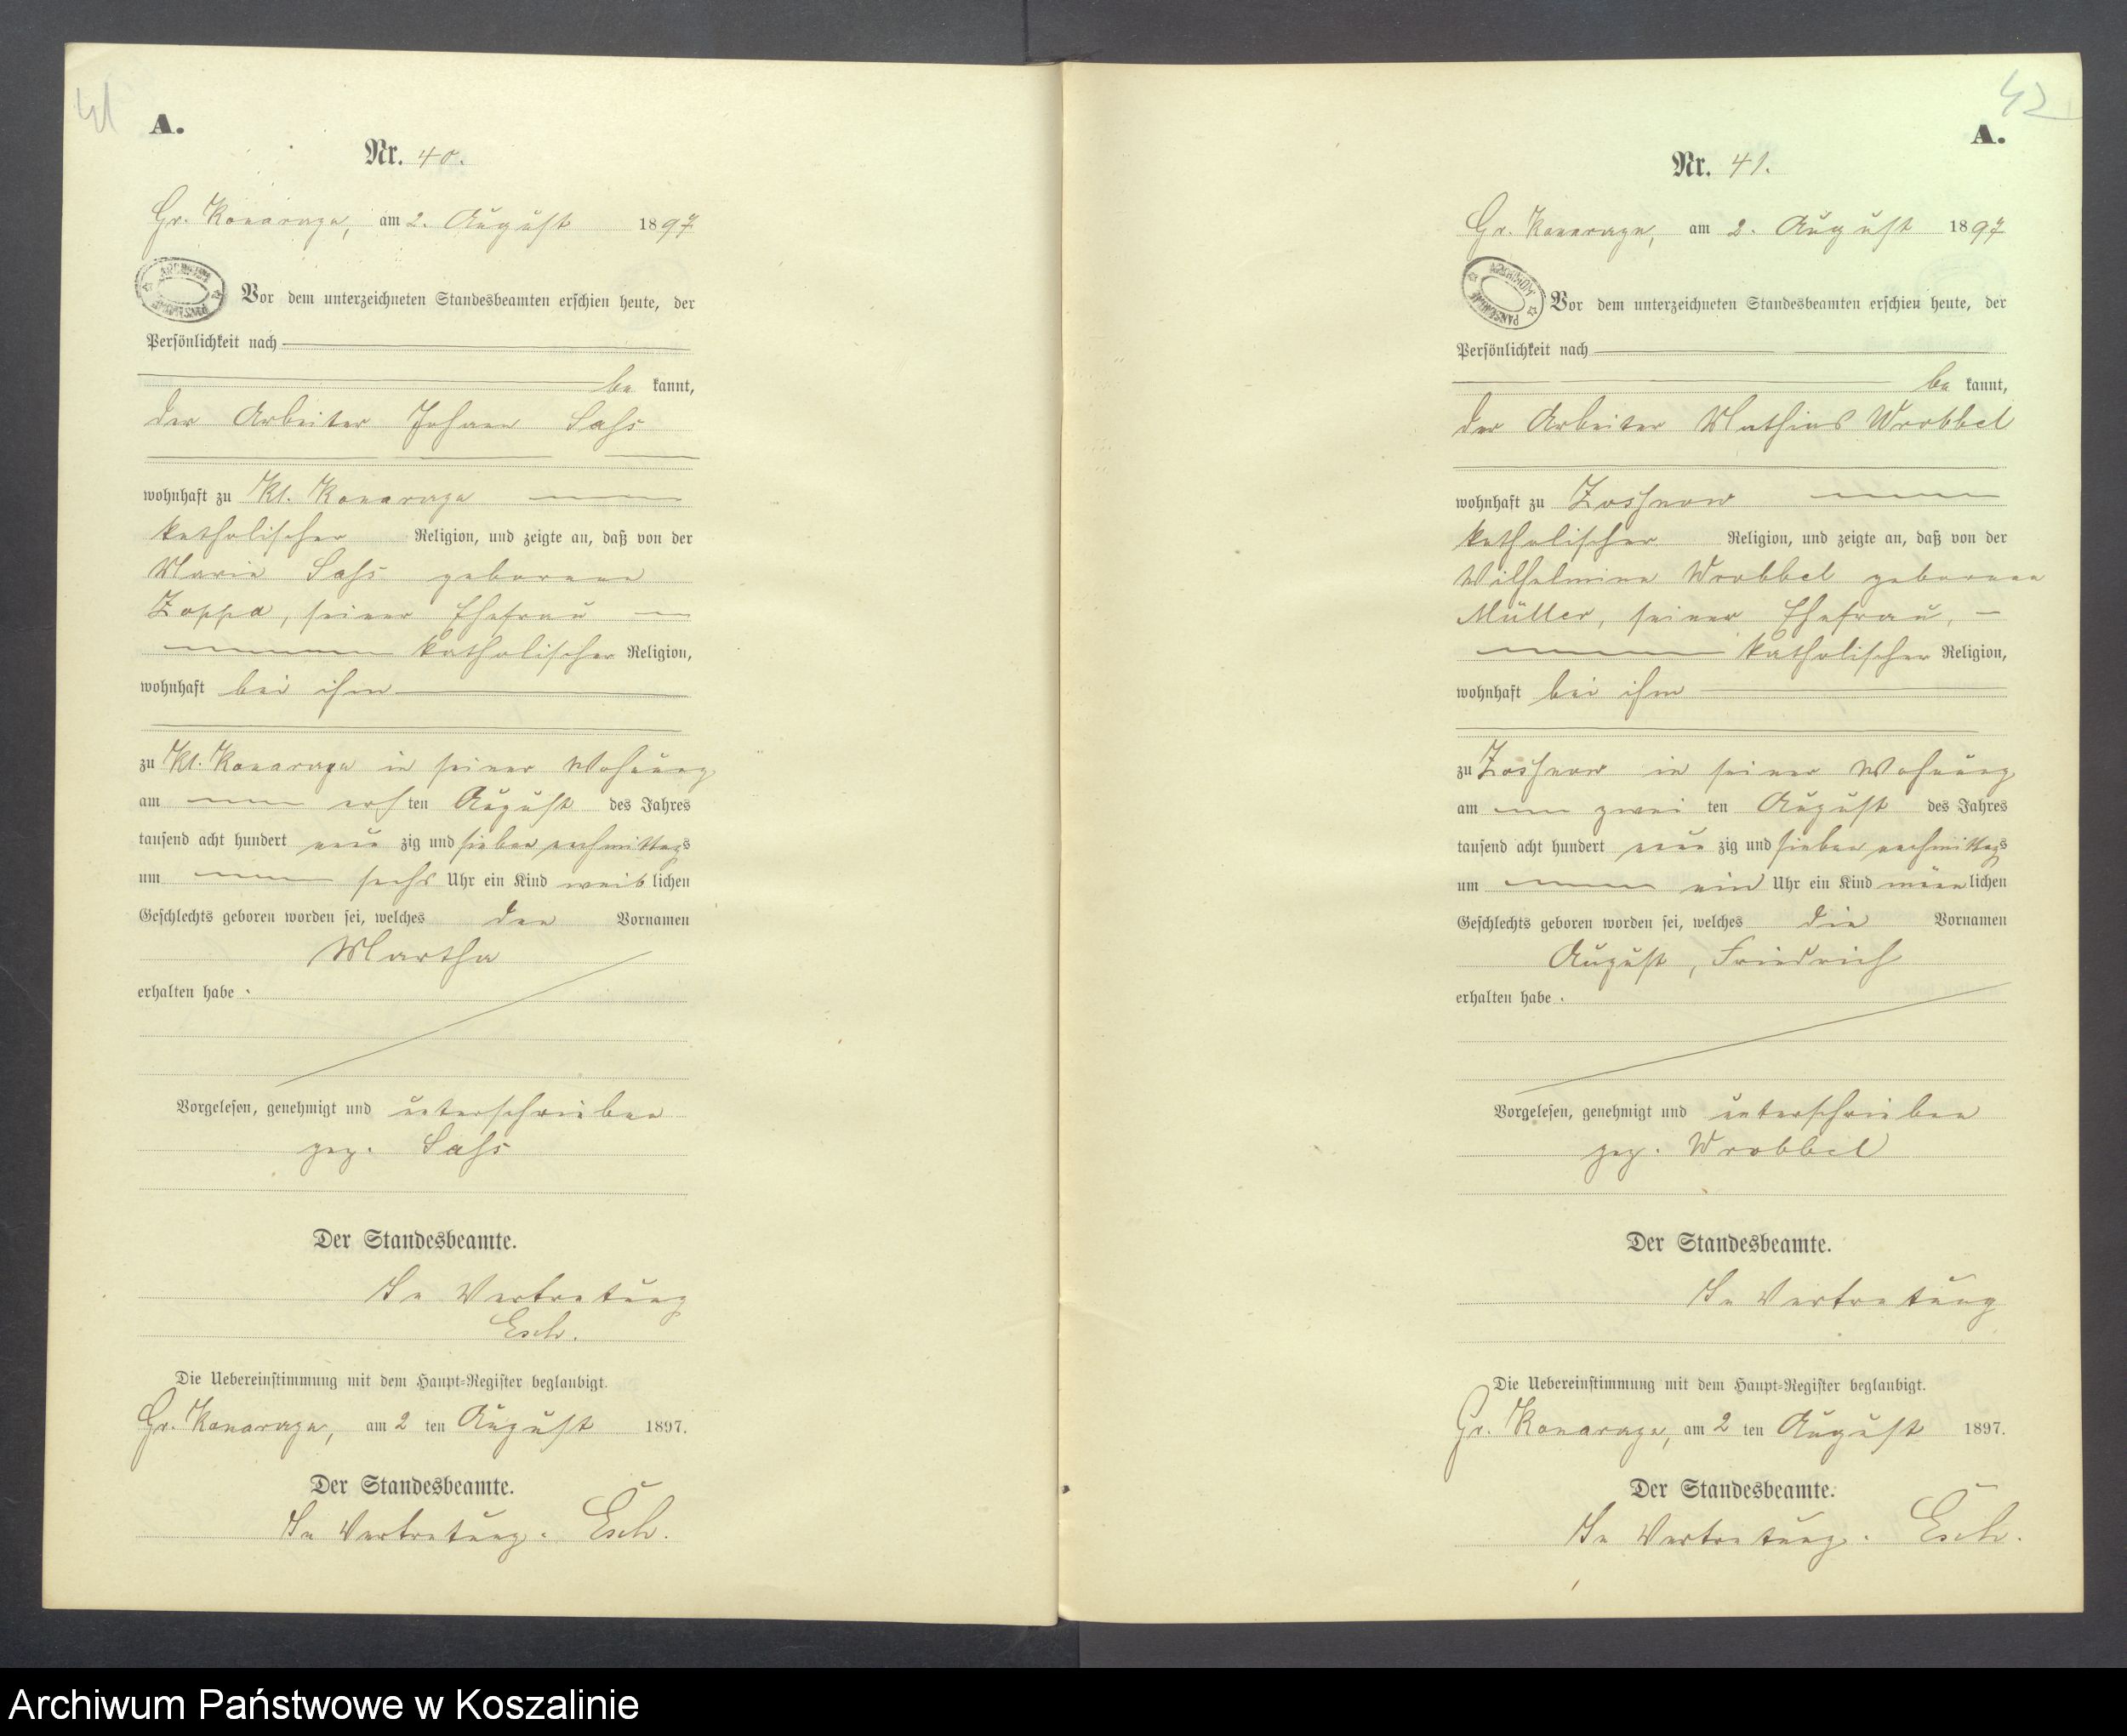 41
A.
Nr. 40.
Gr. Konarzyn, am 2. August 1897
ARCHIWUM PAŃSTWOWE
Vor dem unterzeichneten Standesbeamten erschien heute, der
Persönlichkeit nach
be kannt,
der Arbeiter Johann
wohnhaft zu Kl. Konarzyn
katholischer Religion, und zeigte an, daß von der
Marie geborene
seiner Ehefrau
katholischer Religion,
wohnhaft bei ihm
zu Kl. Konarzyn in seiner Wohnung
am ersten August des Jahres
tausend acht hundert neun zig und sieben nachmittags
um sechs Uhr ein Kind weib lichen
Geschlechts geboren worden sei, welches den Vornamen
Martha
erhalten habe.
Vorgelesen, genehmigt und unterschrieben
gez.
Der Standesbeamte.
In Vertretung
Esch.
Die Uebereinstimmung mit dem Haupt-Register beglaubigt.
Gr. Konarzyn, am 2 ten August 1897.
Der Standesbeamte.
In Vertretung. Esch.
42
A.
Nr. 41.
Gr. Konarzyn, am 2. August 1897
ARCHIWUM PAŃSTWOWE
Vor dem unterzeichneten Standesbeamten erschien heute, der
Persönlichkeit nach
be kannt,
der Arbeiter Mathias Wrobbel
wohnhaft zu
katholischer Religion, und zeigte an, daß von der
Wilhelmine Wrobbel geborene
Müller, seiner Ehefrau,
katholischer Religion,
wohnhaft bei ihm
zu in seiner Wohnung
am zwei ten August des Jahres
tausend acht hundert neun zig und sieben nachmittags
um ein Uhr ein Kind männ lichen
Geschlechts geboren worden sei, welches die Vornamen
August, Friedrich
erhalten habe.
Vorgelesen, genehmigt und unterschrieben
gez. Wrobbel
Der Standesbeamte.
In Vertretung
Die Uebereinstimmung mit dem Haupt-Register beglaubigt.
Gr. Konarzyn, am 2 ten August 1897.
Der Standesbeamte.
In Vertretung. Esch.
Archiwum Państwowe w Koszalinie